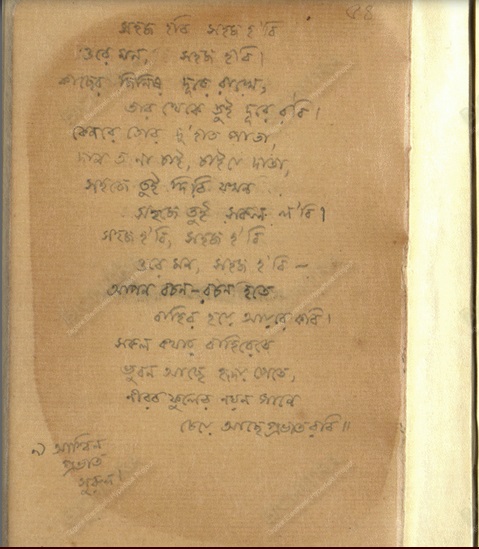 সহজ হবি সহজ হ'বি
ওরে মন, সহজ হ'বি।
কাছের জিনিষ দূরে রাখে,
তার থেকে তুই দূরে র'বি।
কেনরে তোর দু'হাত পাতা,
দান ত না চাই, চাই যে দাতা,
সহজে তুই দিবি যখন
সহজে তুই সকল ল'বি।
সহজ হ'বি, সহজ হ'বি
ওরে মন, সহজ হ'বি –
আপন বচন-রচন হতে
বাহির হয়ে আয়রে কবি।
সকল কথার বাহিরেতে
ভুবন আছে হৃদয় পেতে,
নীরব ফুলের নয়ন পানে
চেয়ে আছে প্রভাত রবি॥
৯ আশ্বিন
প্রভাত
সুরুল।